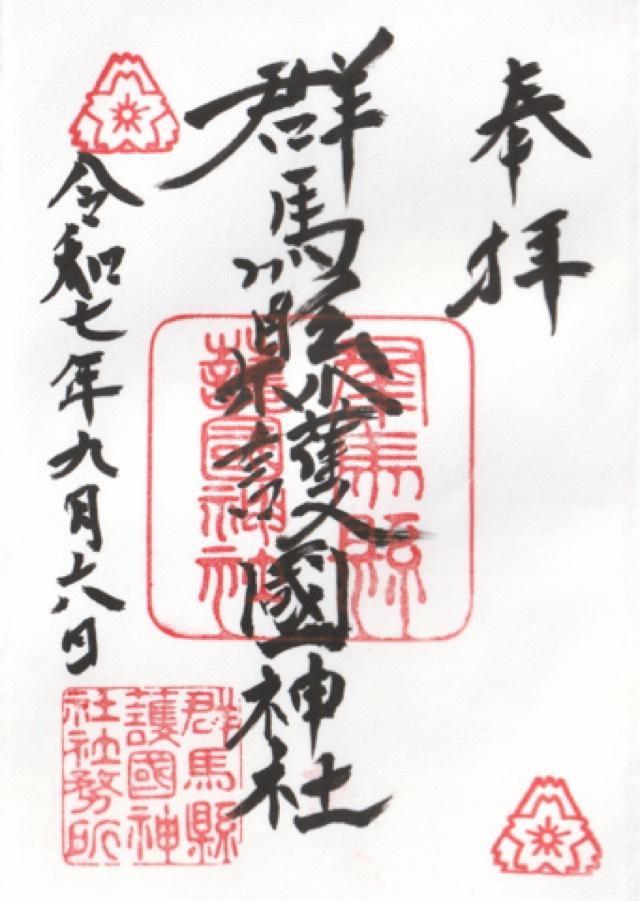 奉拝
群馬縣護國神社
令和七年九月六日
群馬縣
護國神社
群馬縣
護國神
社社務所